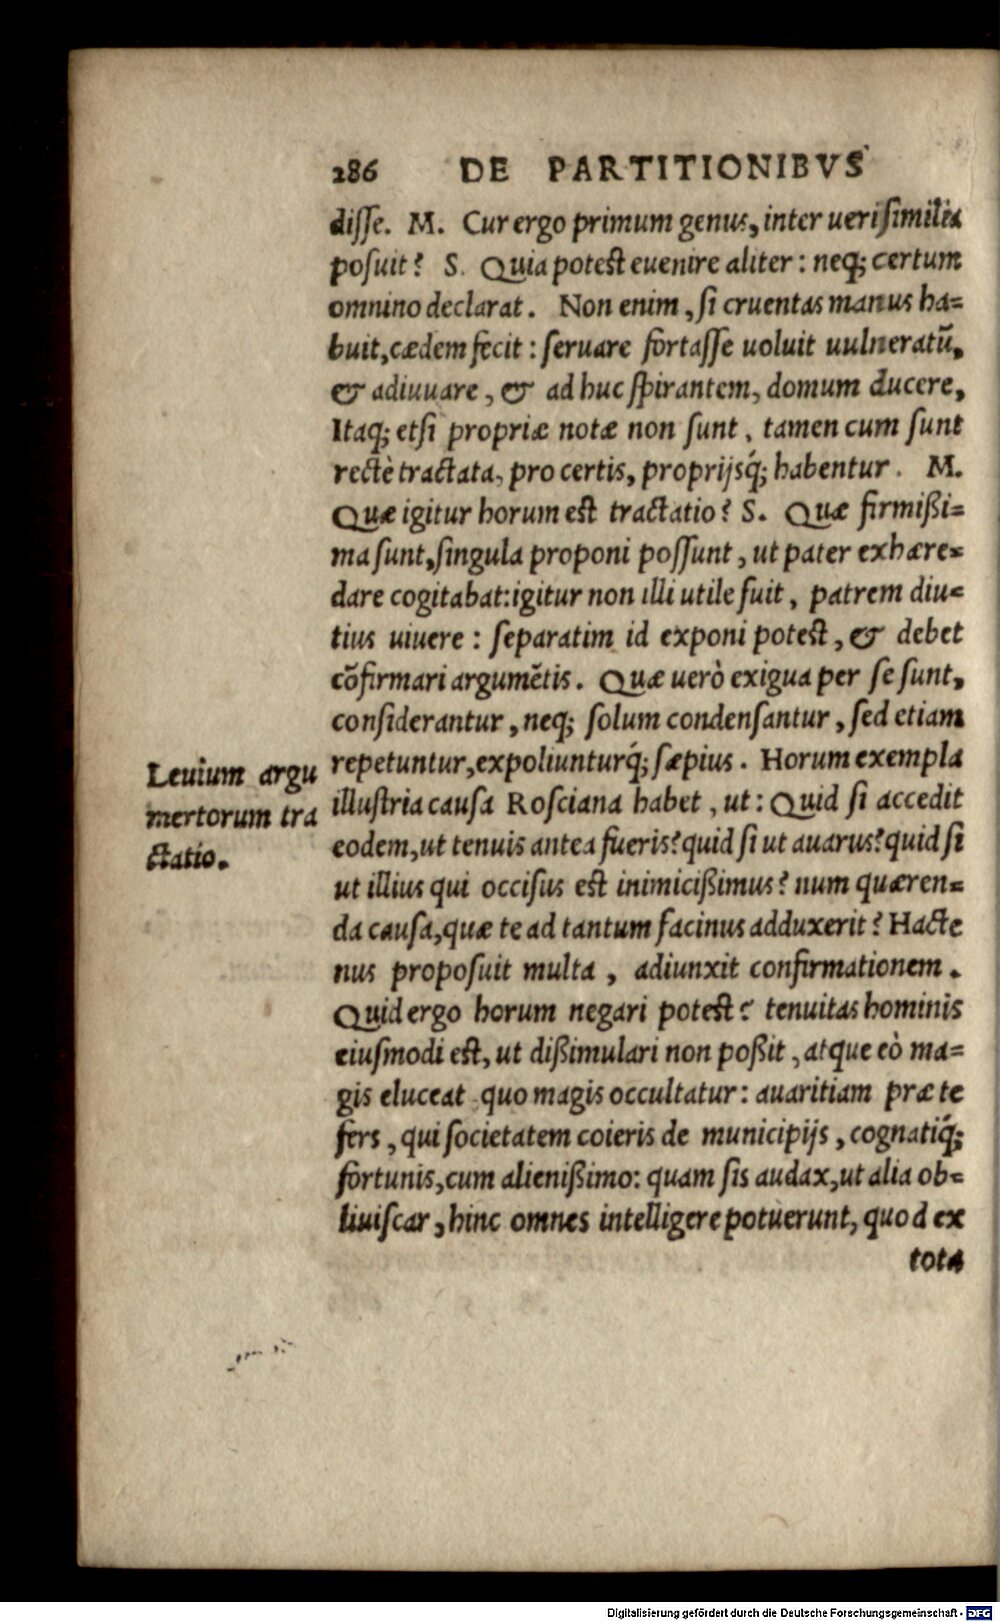 286 DE PARTITIONIBVS
disse. M. Cur ergo primum genus, inter uerisimilia
posuit? S. Quia potest euenire aliter: neq; certum
omnino declarat. Non enim, si cruentas manus ha=
buit, cædem fecit: seruare fortasse uoluit uulneratũ,
& adiuuare, & ad huc spirantem, domum ducere,
Itaq; etsi propriæ notæ non sunt, tamen cum sunt
rectè tractata, pro certis, proprijsq́; habentur. M.
Quæ igitur horum est tractatio? S. Quæ firmißi=
ma sunt, singula proponi possunt, ut pater exhære=
dare cogitabat: igitur non illi utile fuit, patrem diu=
tius uiuere: separatim id exponi potest, & debet
cõfirmari argumẽtis. Quæ uerò exigua per se sunt,
considerantur, neq; solum condensantur, sed etiam
repetuntur, expoliunturq́; sæpius. Horum exempla
Leuium argu
mertorum tra
ctatio.
illustria causa Rosciana habet, ut: Quid si accedit
eodem, ut tenuis antea fueris? quid si ut auarus? quid si
ut illius qui occisus est inimicißimus? num quæren=
da causa, quæ te ad tantum facinus adduxerit? Hacte
nus proposuit multa, adiunxit confirmationem.
Quid ergo horum negari potest? tenuitas hominis
eiusmodi est, ut dißimulari non poßit, atque eò ma=
gis eluceat quo magis occultatur: auaritiam præ te
fers, qui societatem coieris de municipijs, cognatiq́;
fortunis, cum alienißimo: quam sis audax, ut alia ob=
liuiscar, hinc omnes intelligere potuerunt, quod ex
tota
Digitalisierung gefördert durch die Deutsche Forschungsgemeinschaft - DFG